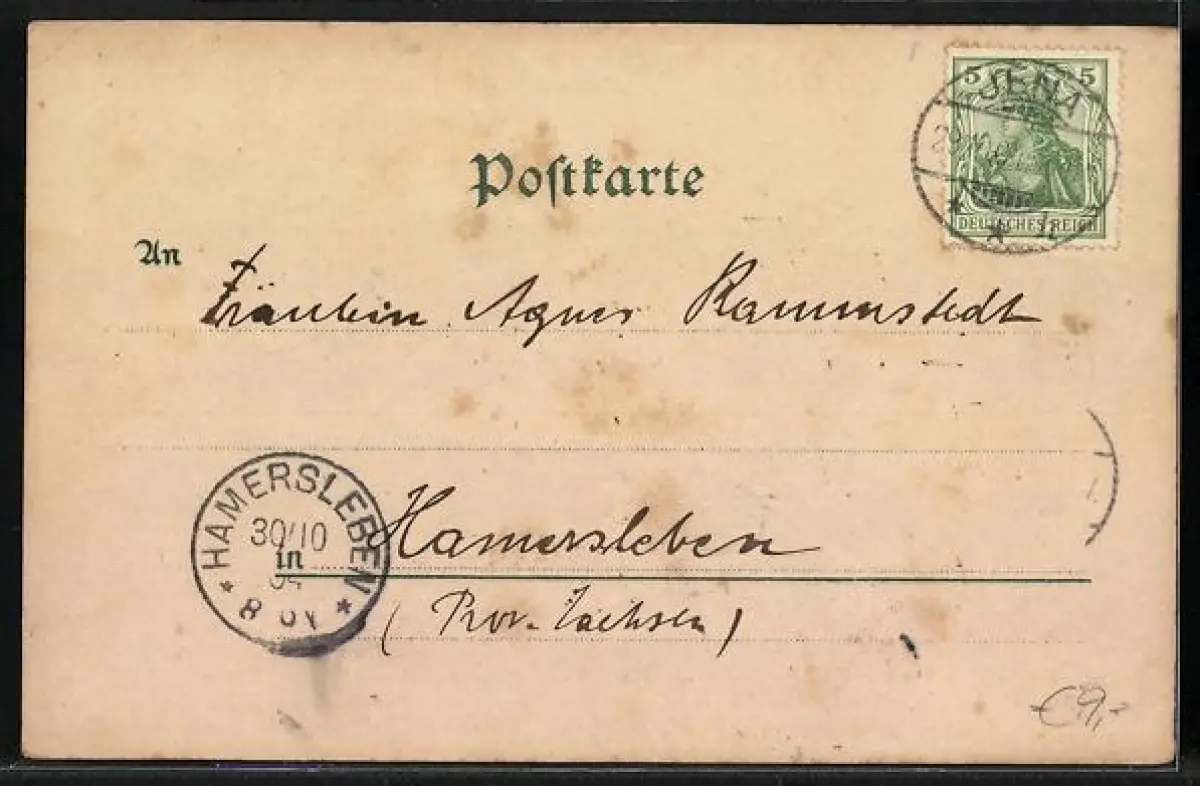 5 5
JENA
DEUTSCHES REICH
Postkarte
An
Fräulein Agnes Rammstedt
HAMERSLEBEN
30/10
in Hamersleben
(Prov. Sachsen)
€ 9,-